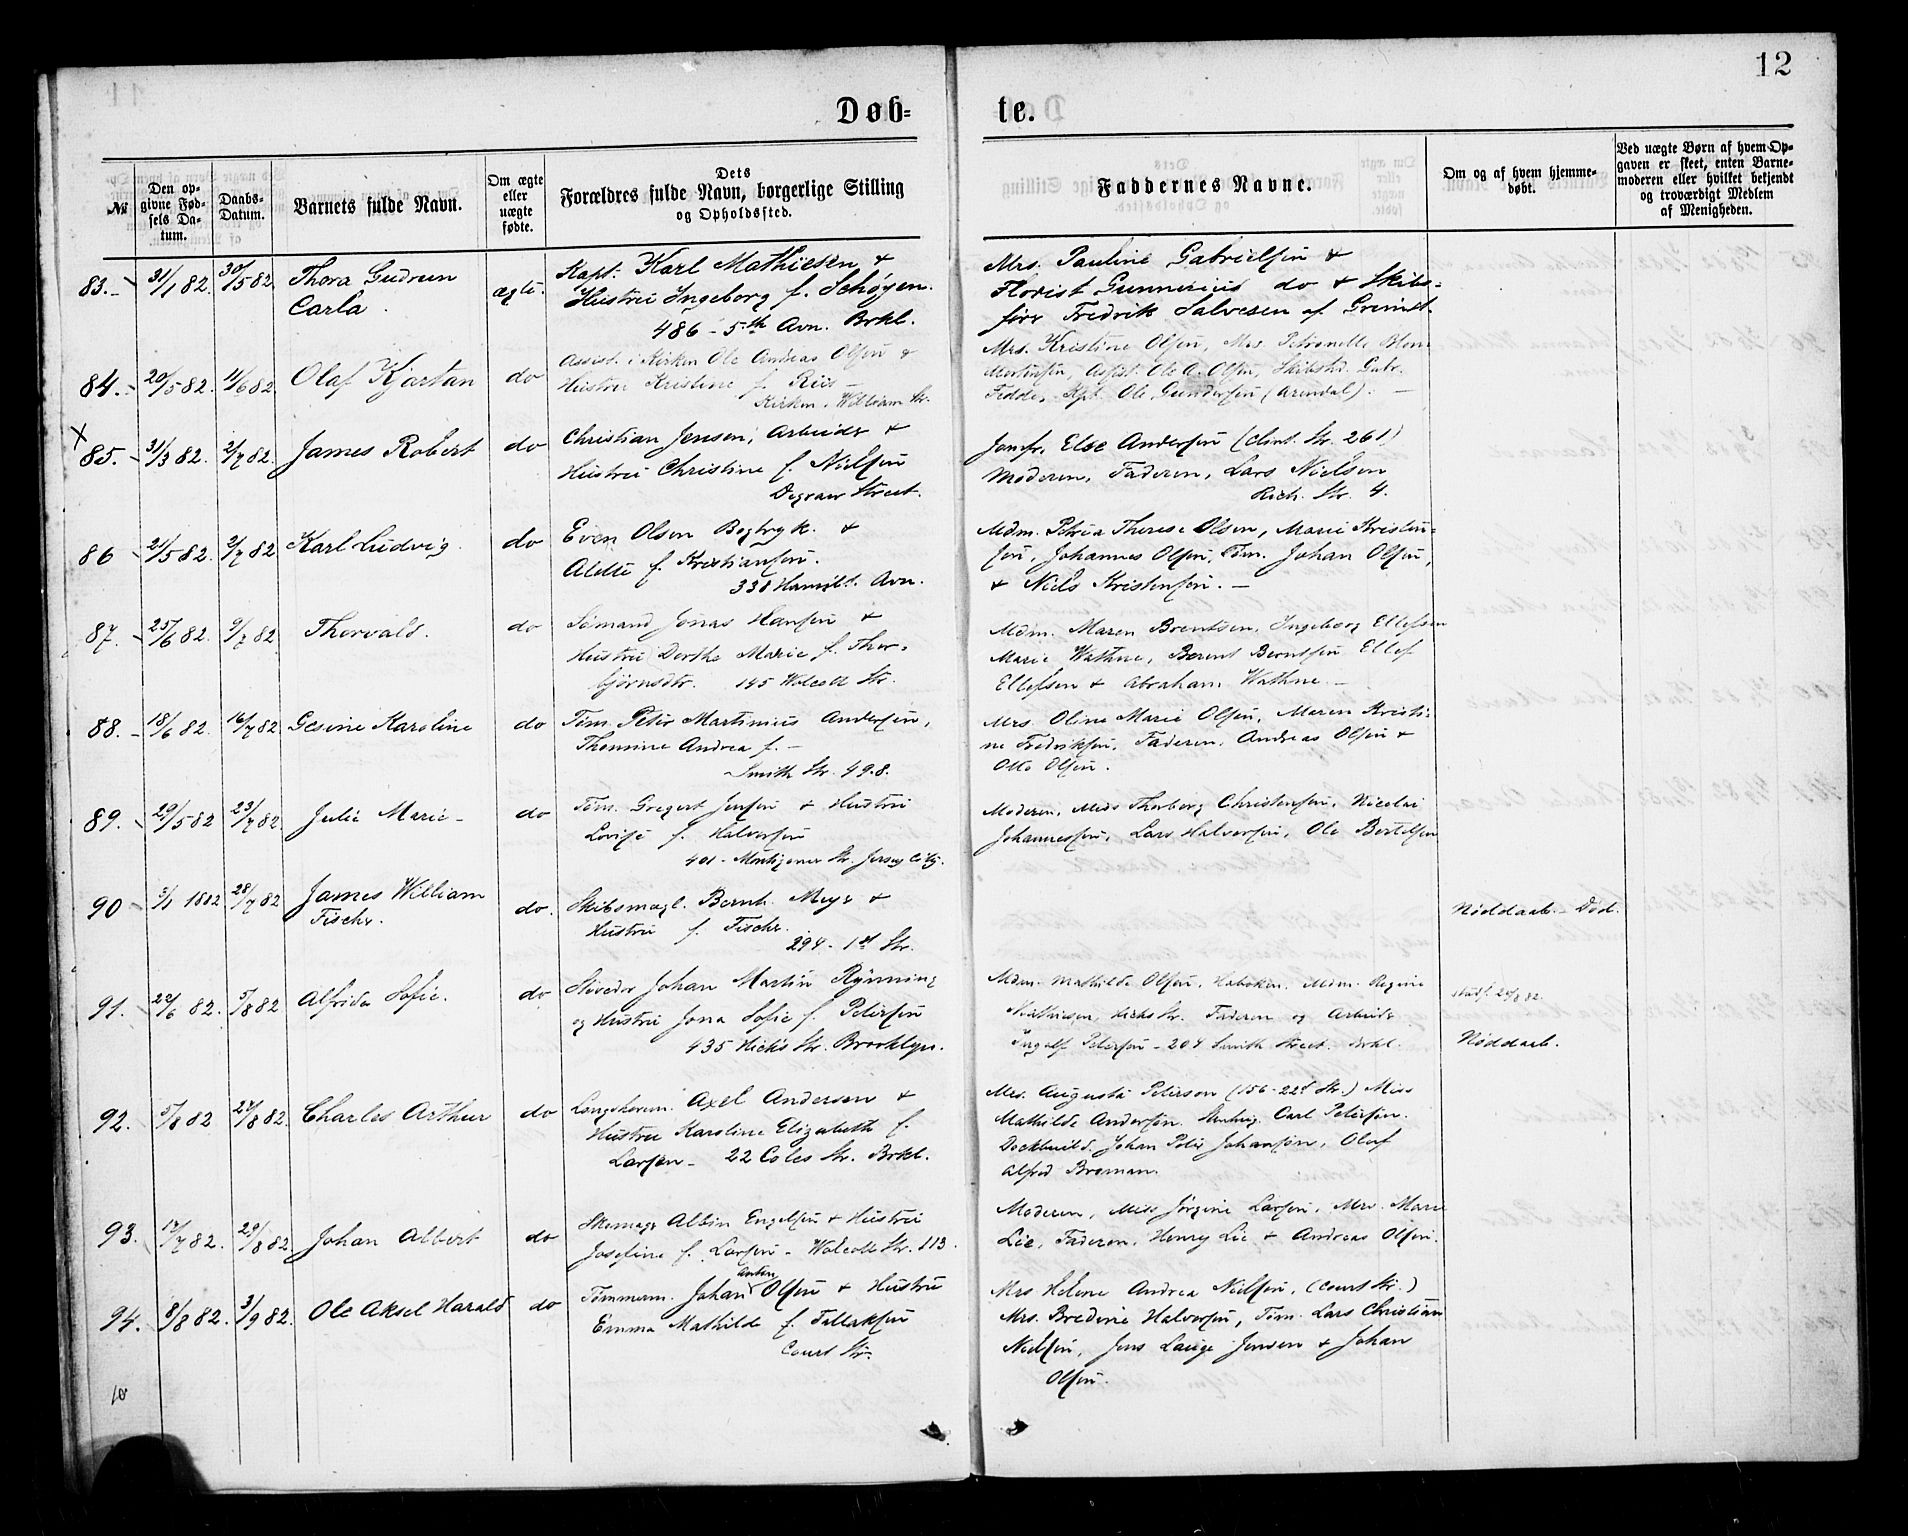 12
Døb-
te.
№
Den op-
givne Fød-
sels Da-
tum.
Daabs-
Datum.
Barnets fulde Navn.
Om ægte
eller
uægte
fødte.
Dets
Forældres fulde Navn, borgerlige Stilling
og Opholdssted.
Faddernes Navne.
Om og af hvem hjemme-
døbt.
Ved uægte Børn af hvem Op-
gaven er skeet, enten Barne-
moderen eller hvilket bekjendt
og troværdigt Medlem
af Menigheden.
83. 31/1 82. 30/5 82 Thora Gudrun
Carla.
ægte.
Kapt. Karl Mathiesen &
Hustru Ingeborg f. Schøyen.
486 - 5th Avn. Brkl.
Mrs. Pauline Gabrielsen &
Florist Gunnerius do & Skibs-
fører Fredrik Salvesen af Grimst.
84. 20/5 82. 11/6 82. Olaf Kjartan do
Assist. i Kirken Ole Andreas Olsen &
Hustru Kristine f. Riis
Kirken, William Str.
Mrs. Kristine Olsen, Mrs. Petronelle
Mortensen, Assist. Ole A. Olsen, Gabr.
Fedde, Kpt. Ole Gundersen (Arendal). -
X
85. 31/3 82. 2/7 82. James Robert do
Christian Jensen, Arbeider &
Hustru Christine f. Nielsen
Degraw Street.
Jomfr. Else Andersen (Clint. Str. 261)
Moderen, Faderen, Lars Nielsen
Rich. Str. 4.
86 21/5 82. 2/7 82 Karl Ludvig. do
Even Olsen Bogtryk. &
f. Kristiansen.
338 Hamilt. Avn.
Mdm. Petrea Therese Olsen, Marie Kristen-
sen, Johannes Olsen, Tøm. Johan Olsen,
& Niels Kristensen. -
87. 25/6 82. 9/7 82 Thorvald. do
Sømand Jonas Hansen &
Hustru Dorthe Marie f. Thor-
bjørnsdtr. 145 Wolcott Str.
Mdm. Maren Berntsen, Ingeborg Ellefsen
Marie Wathne, Berent Berntsen Ellef
Ellefsen & Abraham Wathne. -
88. 18/6 82. 16/7 82 Gesine Karoline do
Tøm. Peter Martinius Andersen,
Thomine Andrea f. -
Smith Str. 498.
Mrs. Oline Marie Olsen, Maren Kristi-
ne Fredriksen, Faderen, Andreas Olsen &
Otto Olsen.
89. 29/5 82 23/7 82. Julie Marie - do
Tøm. Gregert Jensen & Hustru
Lovise f. Halvorsen
401 - Str. Jersey City.
Moderen, Miss Thorborg Christensen, Nicolai
Johannessen, Lars Halvorsen, Ole Bertelsen
90 3/1 1882 28/7 82 James William
Fischer.
do.
Skibsmægl. Bernh. Meyer &
Hustru f. Fischer.
294 - 1st Str.
Nøddaab. - Død.
91. 22/6 82. 5/8 82 Alfrida Sofie. do
Stivedor Johan Martin Rynning
og Hustru Jona Sofie f. Petersen
435 Hicks Str. Brooklyn.
Mdm. Mathilde Olsen, Hoboken, Mdm. Regine
Mathiesen, Hicks Str. Faderen og Arbeider
Ingolf Petersen - 204 Smith Street. Brkl.
Nøddaab.
92. 5/8 82 27/8 82. Charles Arthur do
Longshorem. Axel Andersen &
Hustru Karoline Elizabeth f.
Larsen - 22 Coles Str. Brkl.
Mrs. Augusta Peterson (156 - 22d Str.) Miss
Mathilde Andersen. Carl Petersen.
Dockbuild. Johan Peter Johansen, Olaf
Alfred Broman.
93. 17/7 82. 29/8 82 Johan Albert do
Skomager Albin Engelsen & Hustru
Josefine f. Larsen - Wolcott Str. 113.
Moderen, Miss Jørgine Larsen, Mrs. Marie
Lie, Faderen, Henry Lie & Andreas Olsen.
94. 8/8 82. 3/9 82. Ole Aksel Harald do
Tømmerm. Johan Anton Olsen & Hustru
Emma Mathilde f. Tallaksen
Court Str.
Mrs Helene Andrea Nielsen, (Court Str.)
Mrs. Bredine Halvorsen, Tøm. Lars Christian
Nielsen, Jens Lauge Jensen & Johan
Olsen.